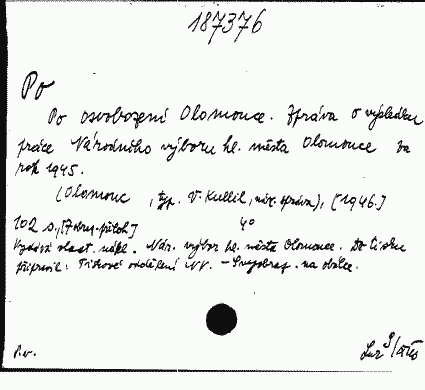 187376
Po
Po osvobození Olomouce. Zpráva o výsledku
práce Národního výboru hl. města Olomouce za
rok 1945.
(Olomouc, typ. V. Kullil, nár. správa), [1946.]
102 s., [7 obr. příloh] 4°
Vydává vlast. nákl. Nár. výbor hl. města Olomouce. Do tisku
připravil: Tiskové oddělení NV. – S vyobraz. na obálce.
P.v.